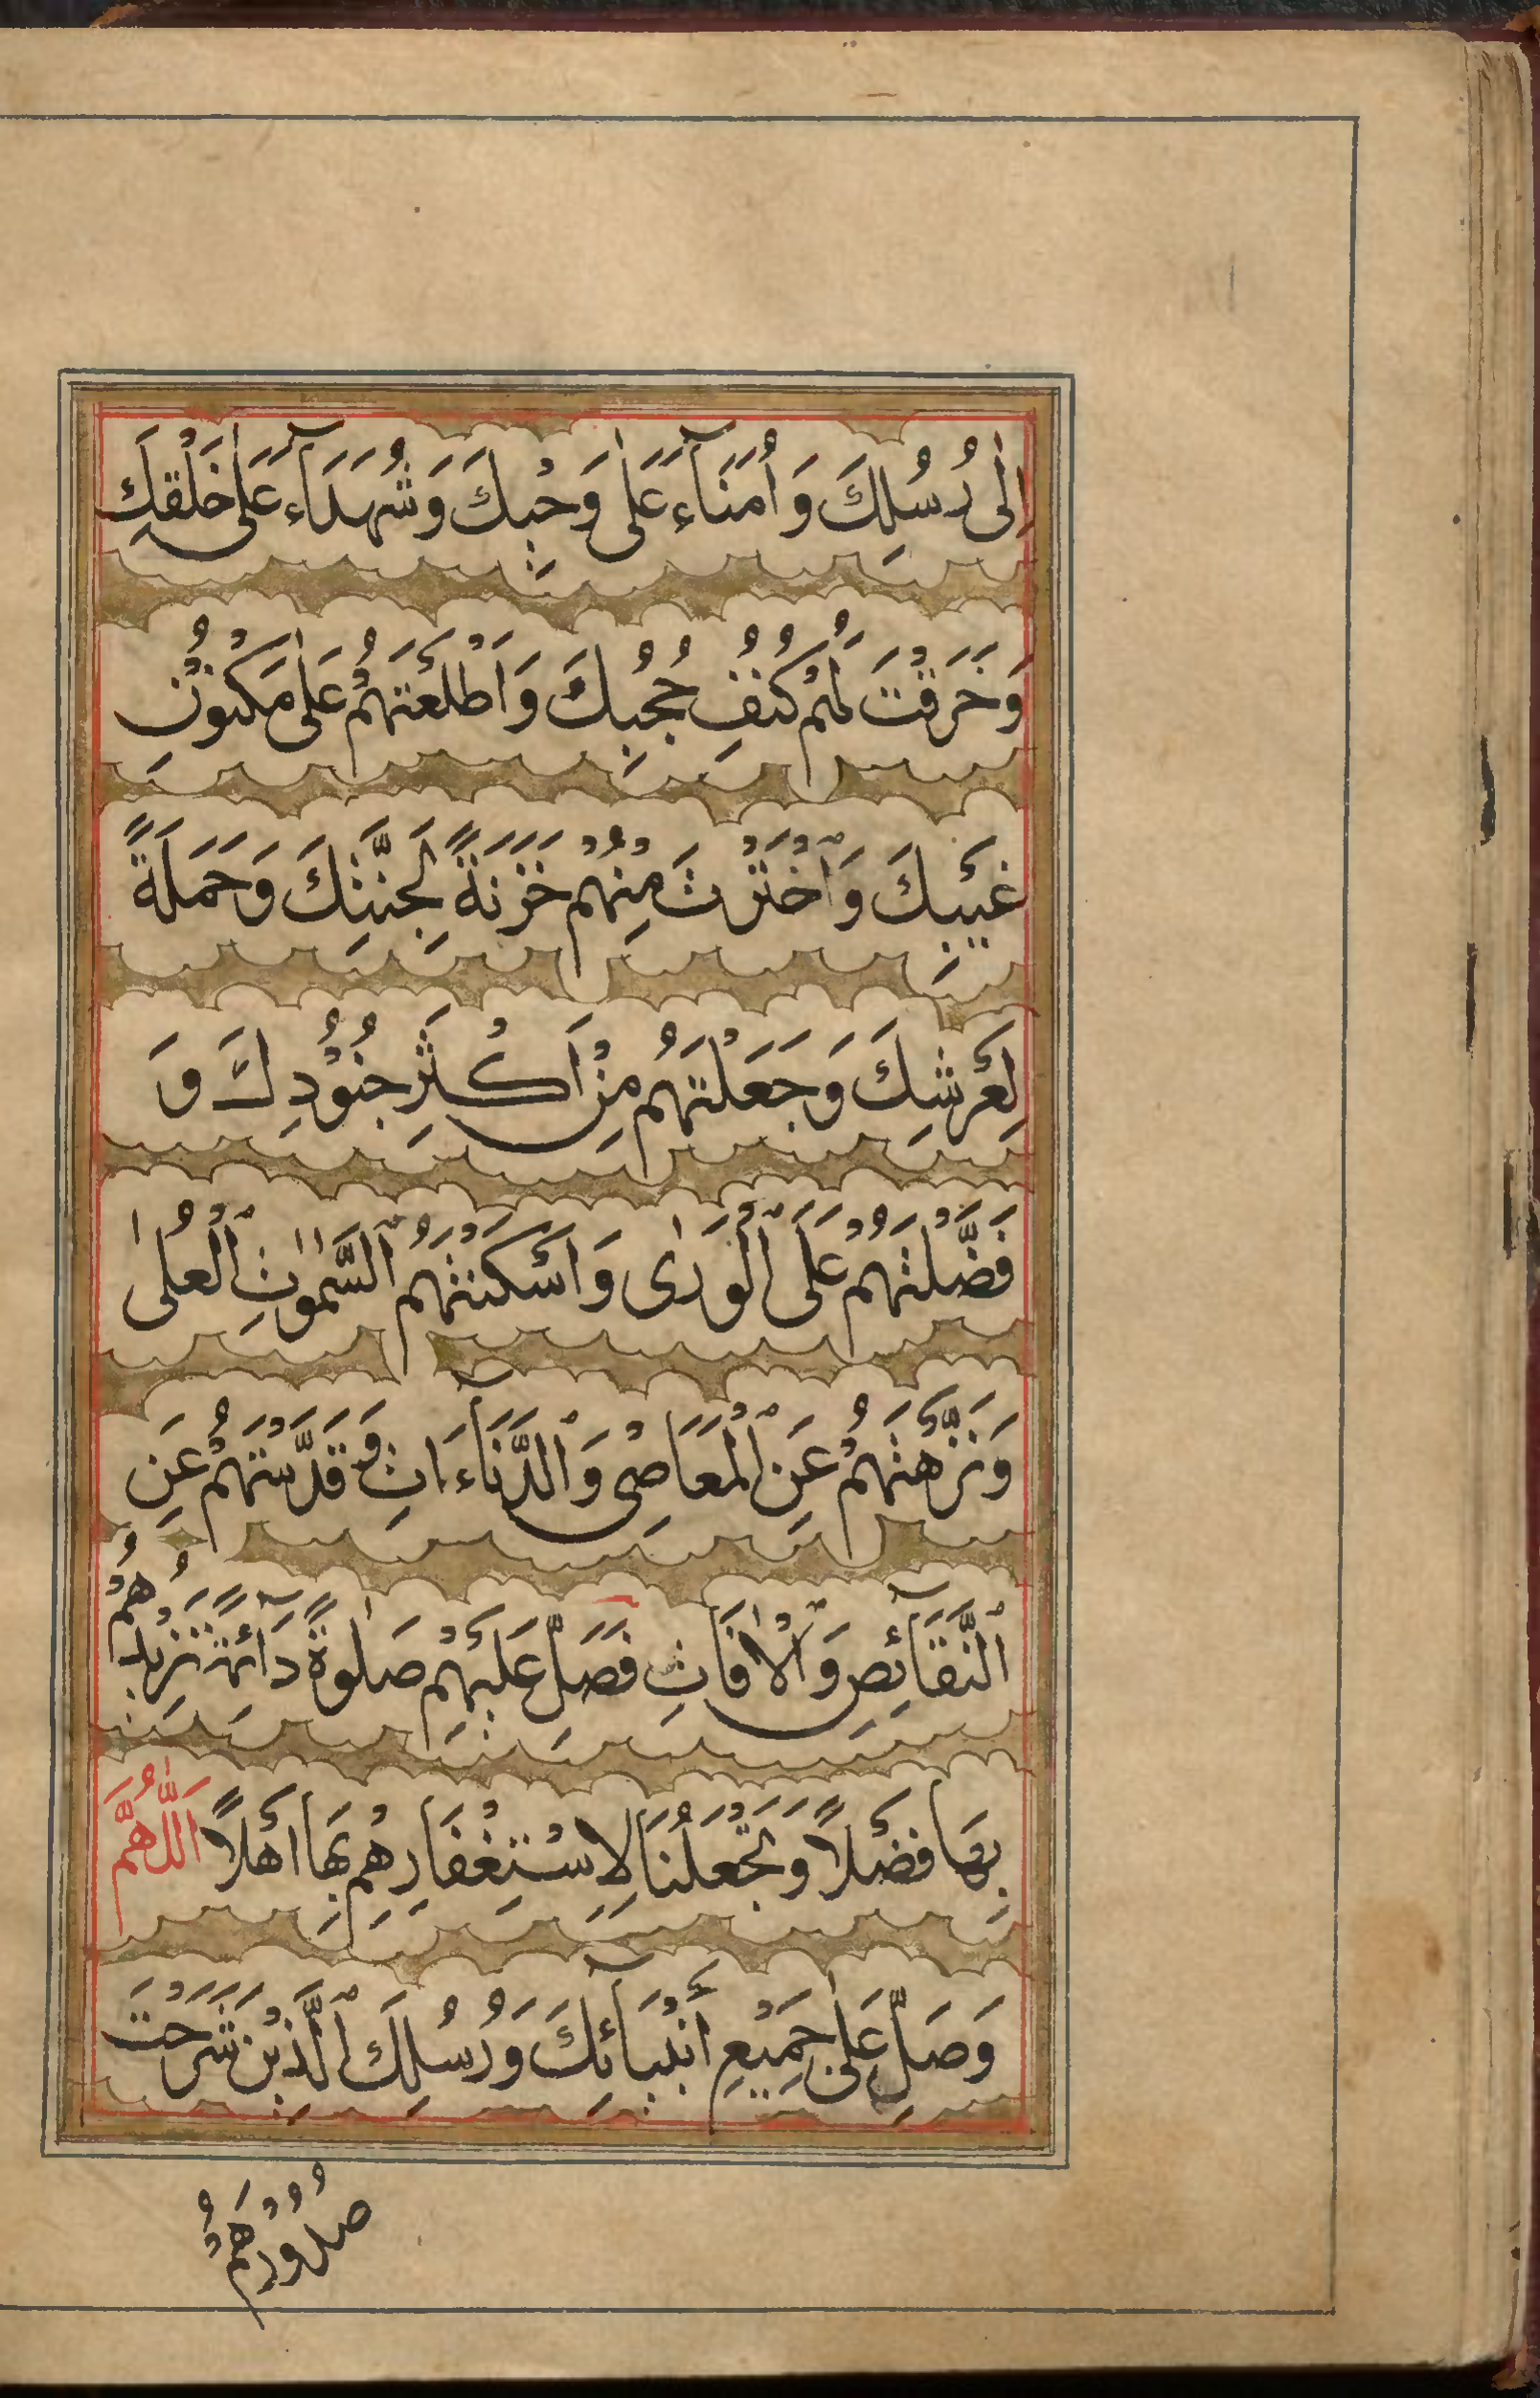 اِلٰى رُسُلِكَ وَاُمَنَآءَ عَلٰى وَحْيِكَ وَشُهَدَآءَ عَلٰى خَلْقِكَ
وَخَرَقْتَ لَهُمْ كُنُفِ حُجُبِكَ وَاَطْلَعْتَهُمْ عَلٰى مَكْنُوْنِ
غَيْبِكَ وَاخْتَرْتَ مِنْهُمْ خَزَنَةً لِجَنَّتِكَ وَحَمَلَةً
لِعَرْشِكَ وَجَعَلْتَهُمْ مِنْ اَكْثَرِ جُنُوْدِكَ وَ
فَضَّلْتَهُمْ عَلَى الْوَرٰى وَاَسْكَنْتَهُمُ السَّمٰوٰتِ الْعُلٰى
وَنَزَّهْتَهُمْ عَنِ الْمَعَاصِىْ وَالدَّنَآءَاتِ وَقَدَّسْتَهُمْ عَنِ
النَّقَآئِصِ وَالْاٰفَاتِ فَصَلِّ عَلَيْهِمْ صَلٰوةً دَآئِمَةً تَزِيْدُهُمْ
بِهَا فَضْلًا وَتَجْعَلُنَا لِاسْتِغْفَارِهِمْ بِهَا اَهْلًا اَللّٰهُمَّ
وَصَلِّ عَلٰى جَمِيْعِ أَنْبِيَآئِكَ وَرُسُلِكَ الَّذِيْنَ شَرَحْتَ
صُدُوْرَهُمْ